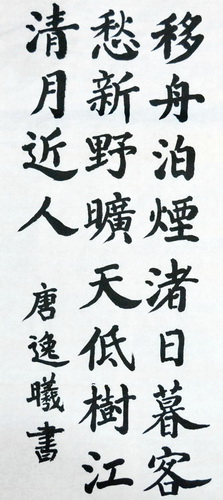 移舟泊煙渚日暮客
愁新野曠天低樹江
清月近人
唐逸曦書